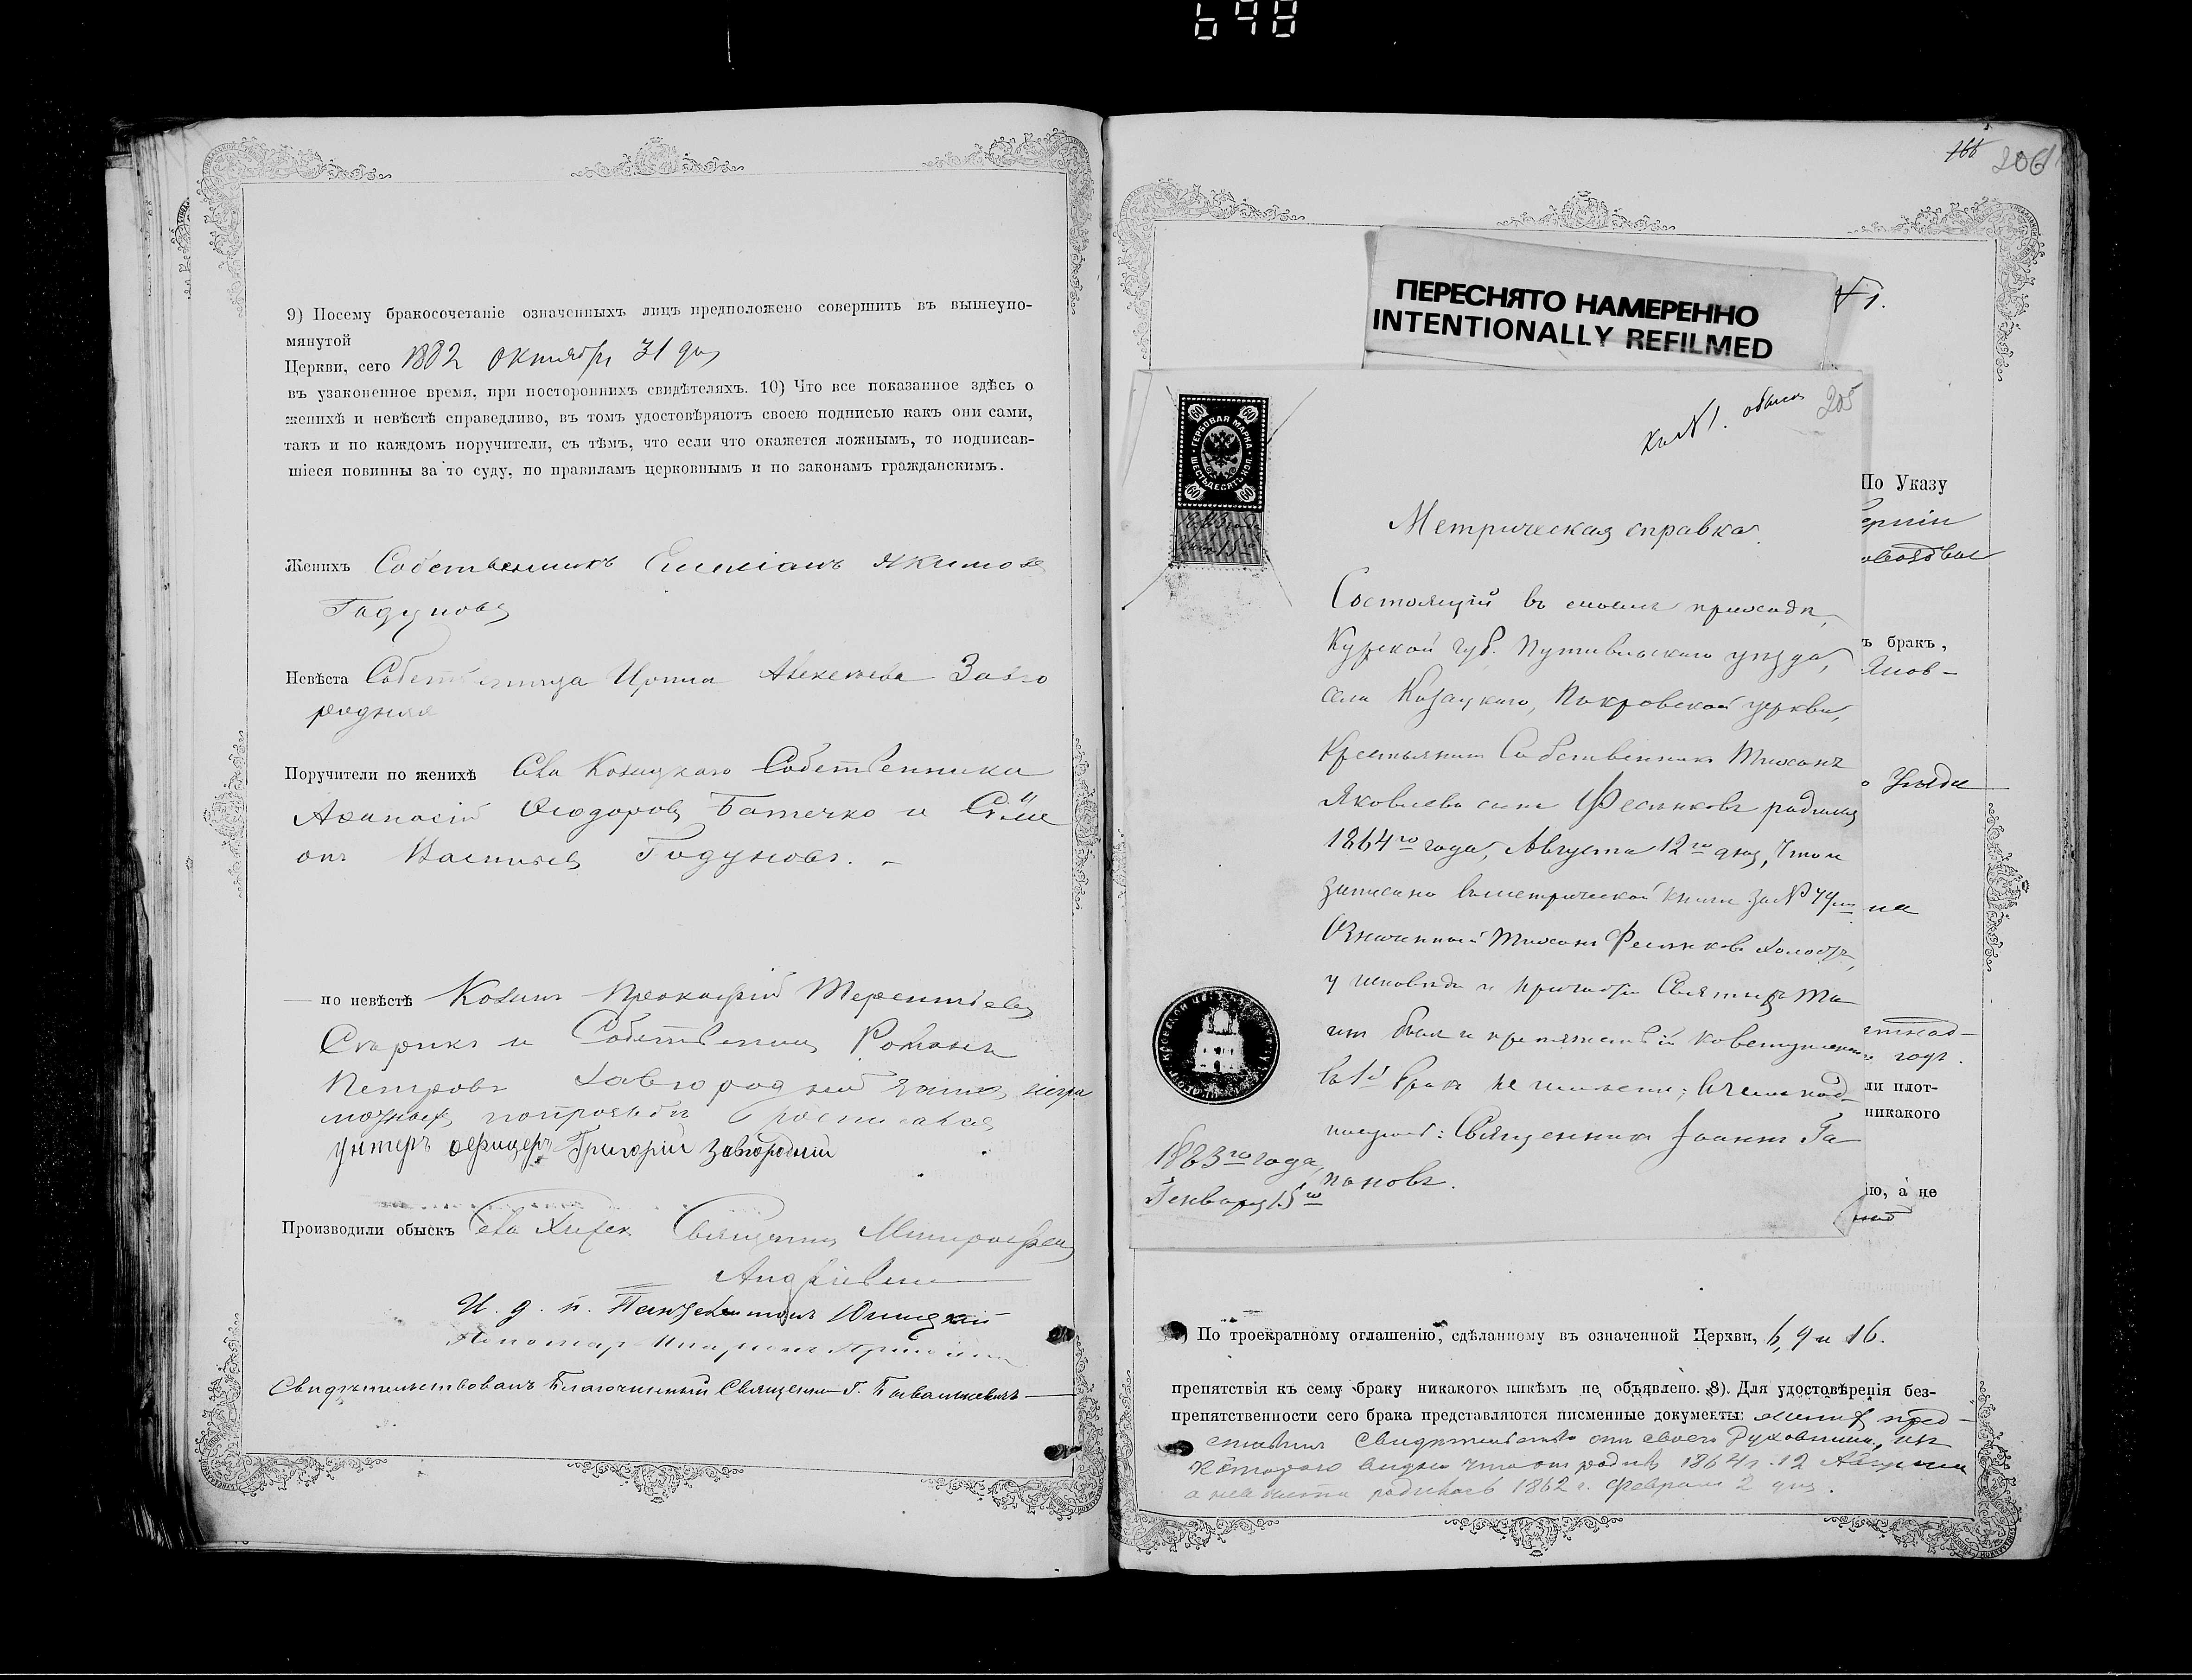 648
9) Посему бракосочетаніе означенныхъ лицъ предположено совершить въ вышеупо-
мянутой
Церкви, сего 1882 октября 31 дня
въ узаконенное время, при постороннихъ свидѣтеляхъ. 10) Что все показанное здѣсь о
женихѣ и невѣстѣ справедливо, въ томъ удостовѣряютъ своею подписью какъ они сами,
такъ и по каждомъ поручители, съ тѣмъ, что если что окажется ложнымъ, то подписав-
шіеся повинны за то суду, по правиламъ церковнымъ и по законамъ гражданскимъ.
Женихъ Собственникъ Емиліанъ Якимовъ
Годуновъ
Невѣста Собственница Ирина Алексѣева Заво
родняя
Поручители по женихѣ Села Козацкаго Собственники
Аѳанасій Ѳеодоровъ Батечко и Сѵме
онъ Васильевъ Годуновъ. –
по невѣстѣ Козакъ Прокофій Терентіевъ
Старикъ и Собственникъ Романъ
Петровъ Завгородній за нихъ негра
мотныхъ по прозьбѣ росписался
унтеръ офицеръ Григорій Завгородній
Производили обыскъ Села Священникъ Митрофанъ
Андріевич
И. д. п. Пантелеимонъ
Пономар
Свидѣтельствовалъ Благочинный Священник Г.
166 206
№ 1.
ПЕРЕСНЯТО НАМЕРЕННО
INTENTIONALLY REFILMED
Къ № 1. обыска 205
60 60
ГЕРБОВАЯ МАРКА
ШЕСТЬДЕСЯТЪ КОП.
60 60
1883 года
Генваря 15го
Метрическая справка.
Состоящій въ моемъ приходѣ,
Курской губ. Путивльскаго уѣзда,
села Козацкаго, Покровской церкви,
Крестьянинъ Собственникъ Тихонъ
Яковлевъ сынъ Фесенковъ родился
1864го года, Августа 12го дня, что и
записано въ метрической книге за №
Означенный Тихонъ Фесенковъ холостъ,
у исповѣди и причастія Святыхъ Та
инъ былъ и препятствій ко вступленію
въ 1й бракъ не имѣетъ; въ чемъ под-
писуюсь: Священникъ Іоаннъ Га
пановъ.
1883го года,
Генваря 15го
По Указу
ъ бракъ,
Янов-
Уѣзда
на
годъ.
ли плот-
никакого
ію, а не
) По троекратному оглашенію, сдѣланному въ означенной Церкви, 6, 9 и 16.
препятствія къ сему браку никакого никѣмъ не объявлено. 8). Для удостовѣренія без-
препятственности сего брака представляются писменные документы: женихъ пред-
ставилъ свидѣтельство отъ своего Духовника, изъ
котораго видно что онъ родился 1864 г. 12 Августа
а невѣста родилась 1862 г. февраля 2 дня.